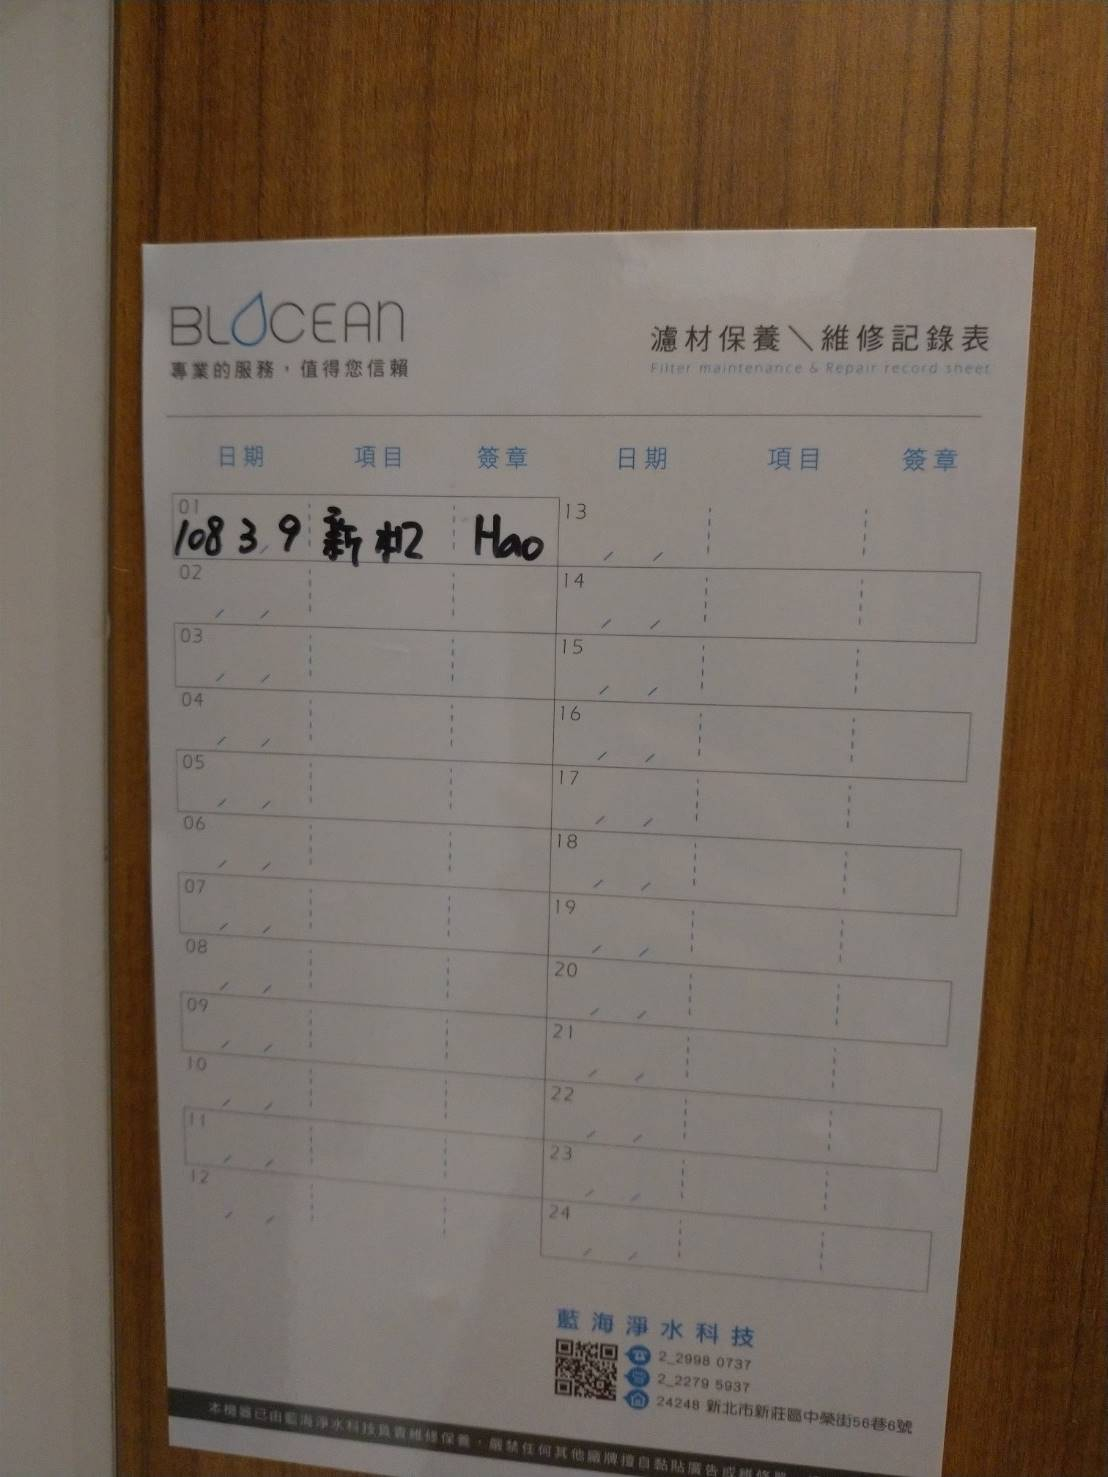 BLOCEAN
專業的服務，值得您信賴
濾材保養＼維修記錄表
Filter maintenance & Repair record sheet
日期 項目 簽章 日期 項目 簽章
01 108 3 9 新机 Hao
02
03
04
05
06
07
08
09
10
11
12
13
14
15
16
17
18
19
20
21
22
23
24
藍海淨水科技
2_2998 0737
2_2279 5937
24248 新北市新莊區中榮街56巷6號
本機器已由藍海淨水科技負責維修保養，嚴禁任何其他廠牌擅自黏貼廣告或維修